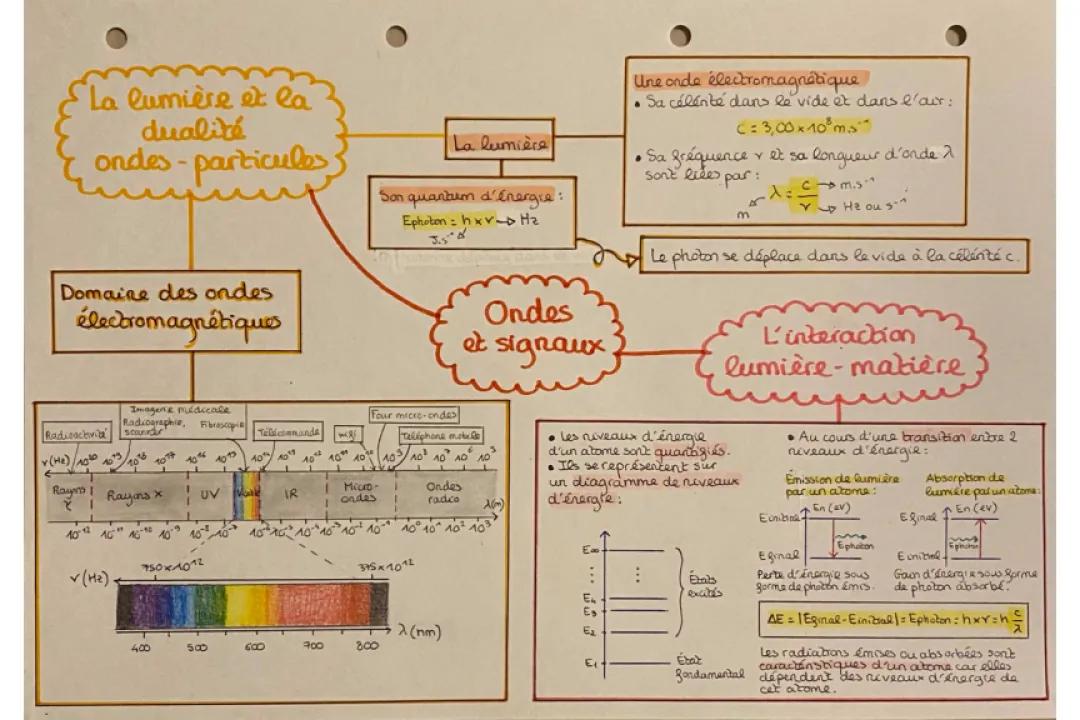 La lumière et la
dualité
ondes-particules
La lumière
Une onde électromagnétique
• Sa célérité dans le vide et dans l'air :
C = 3,00 × 10⁸ m.s⁻¹
• Sa fréquence ν et sa longueur d'onde λ
sont liées par :
λ = c/ν → m.s⁻¹
m → Hz ou s⁻¹
Son quantum d'énergie :
Ephoton = h × ν → Hz
J.s⁻¹
Le photon se déplace dans le vide à la célérité c.
Domaine des ondes
électromagnétiques
Ondes
et signaux
L'interaction
lumière-matière
Imagerie médicale
Radiographie, Fibroscopie
scanner
Radioactivité
Télécommande
wifi
Four micro-ondes
Téléphone mobile
ν (Hz) 10²⁰ 10¹⁹ 10¹⁸ 10¹⁷ 10¹⁶
Rayons
γ
Rayons X
UV
Visible
IR
Micro-
ondes
Ondes
radio
λ(m)
10⁻¹² 10⁻¹¹ 10⁻¹⁰ 10⁻⁹ 10⁻⁸
10⁰ 10¹ 10² 10³
750×10¹² 375×10¹²
ν (Hz)
λ (nm)
400 500 600 700 800
• Les niveaux d'énergie
d'un atome sont quantifiés.
• Ils se représentent sur
un diagramme de niveaux
d'énergie :
E∞
E₄
E₃
E₂
E₁
États
excités
État
fondamental
• Au cours d'une transition entre 2
niveaux d'énergie :
Émission de lumière
par un atome :
En (eV)
Einitial
Ephoton
Efinal
Perte d'énergie sous
forme de photon émis.
Absorption de
lumière par un atome :
En (eV)
Efinal
Ephoton
Einitial
Gain d'énergie sous forme
de photon absorbé.
ΔE = |Efinal - Einitial| = Ephoton = h×ν = h c/λ
Les radiations émises ou absorbées sont
caractéristiques d'un atome car elles
dépendent des niveaux d'énergie de
cet atome.